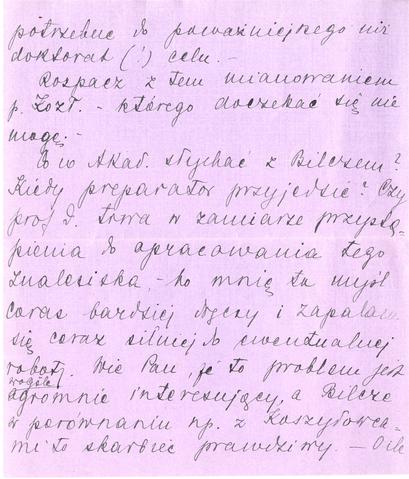 potrzebuc do poważniejszego niż
doktorat (!) celu. –
Rospacz z tem mianowaniem
p. Kozł. – którego doczekać się nie
mogę. –
Co w Akad. słychać z Bilczem?
Kiedy preparator przyjedzie? Czy
prof D. trwa w zamiarze przystą-
pienia do opracowania tego
znaleziska, – bo mnię ta myśl
coras bardziej nęczy i zapalam
się coraz silniej do ewentualnej
roboty. Wie Pan, że to problem jest
wogóle
ogromnie interesujący, a Bilcze
w porównaniu np. z Koszyłowca-
mi to skarbiec prawdziwy. – O ile